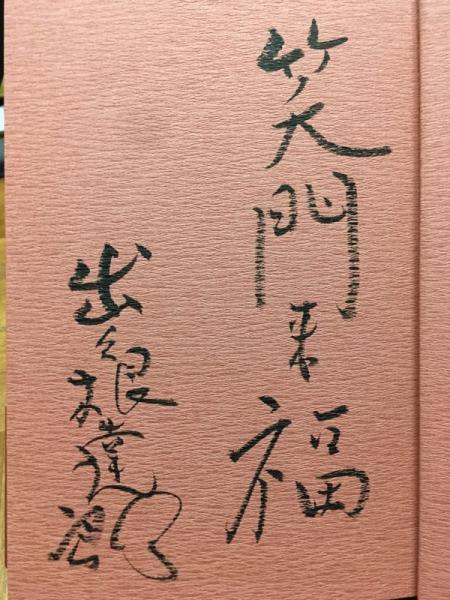 笑門来福
出久根達郎